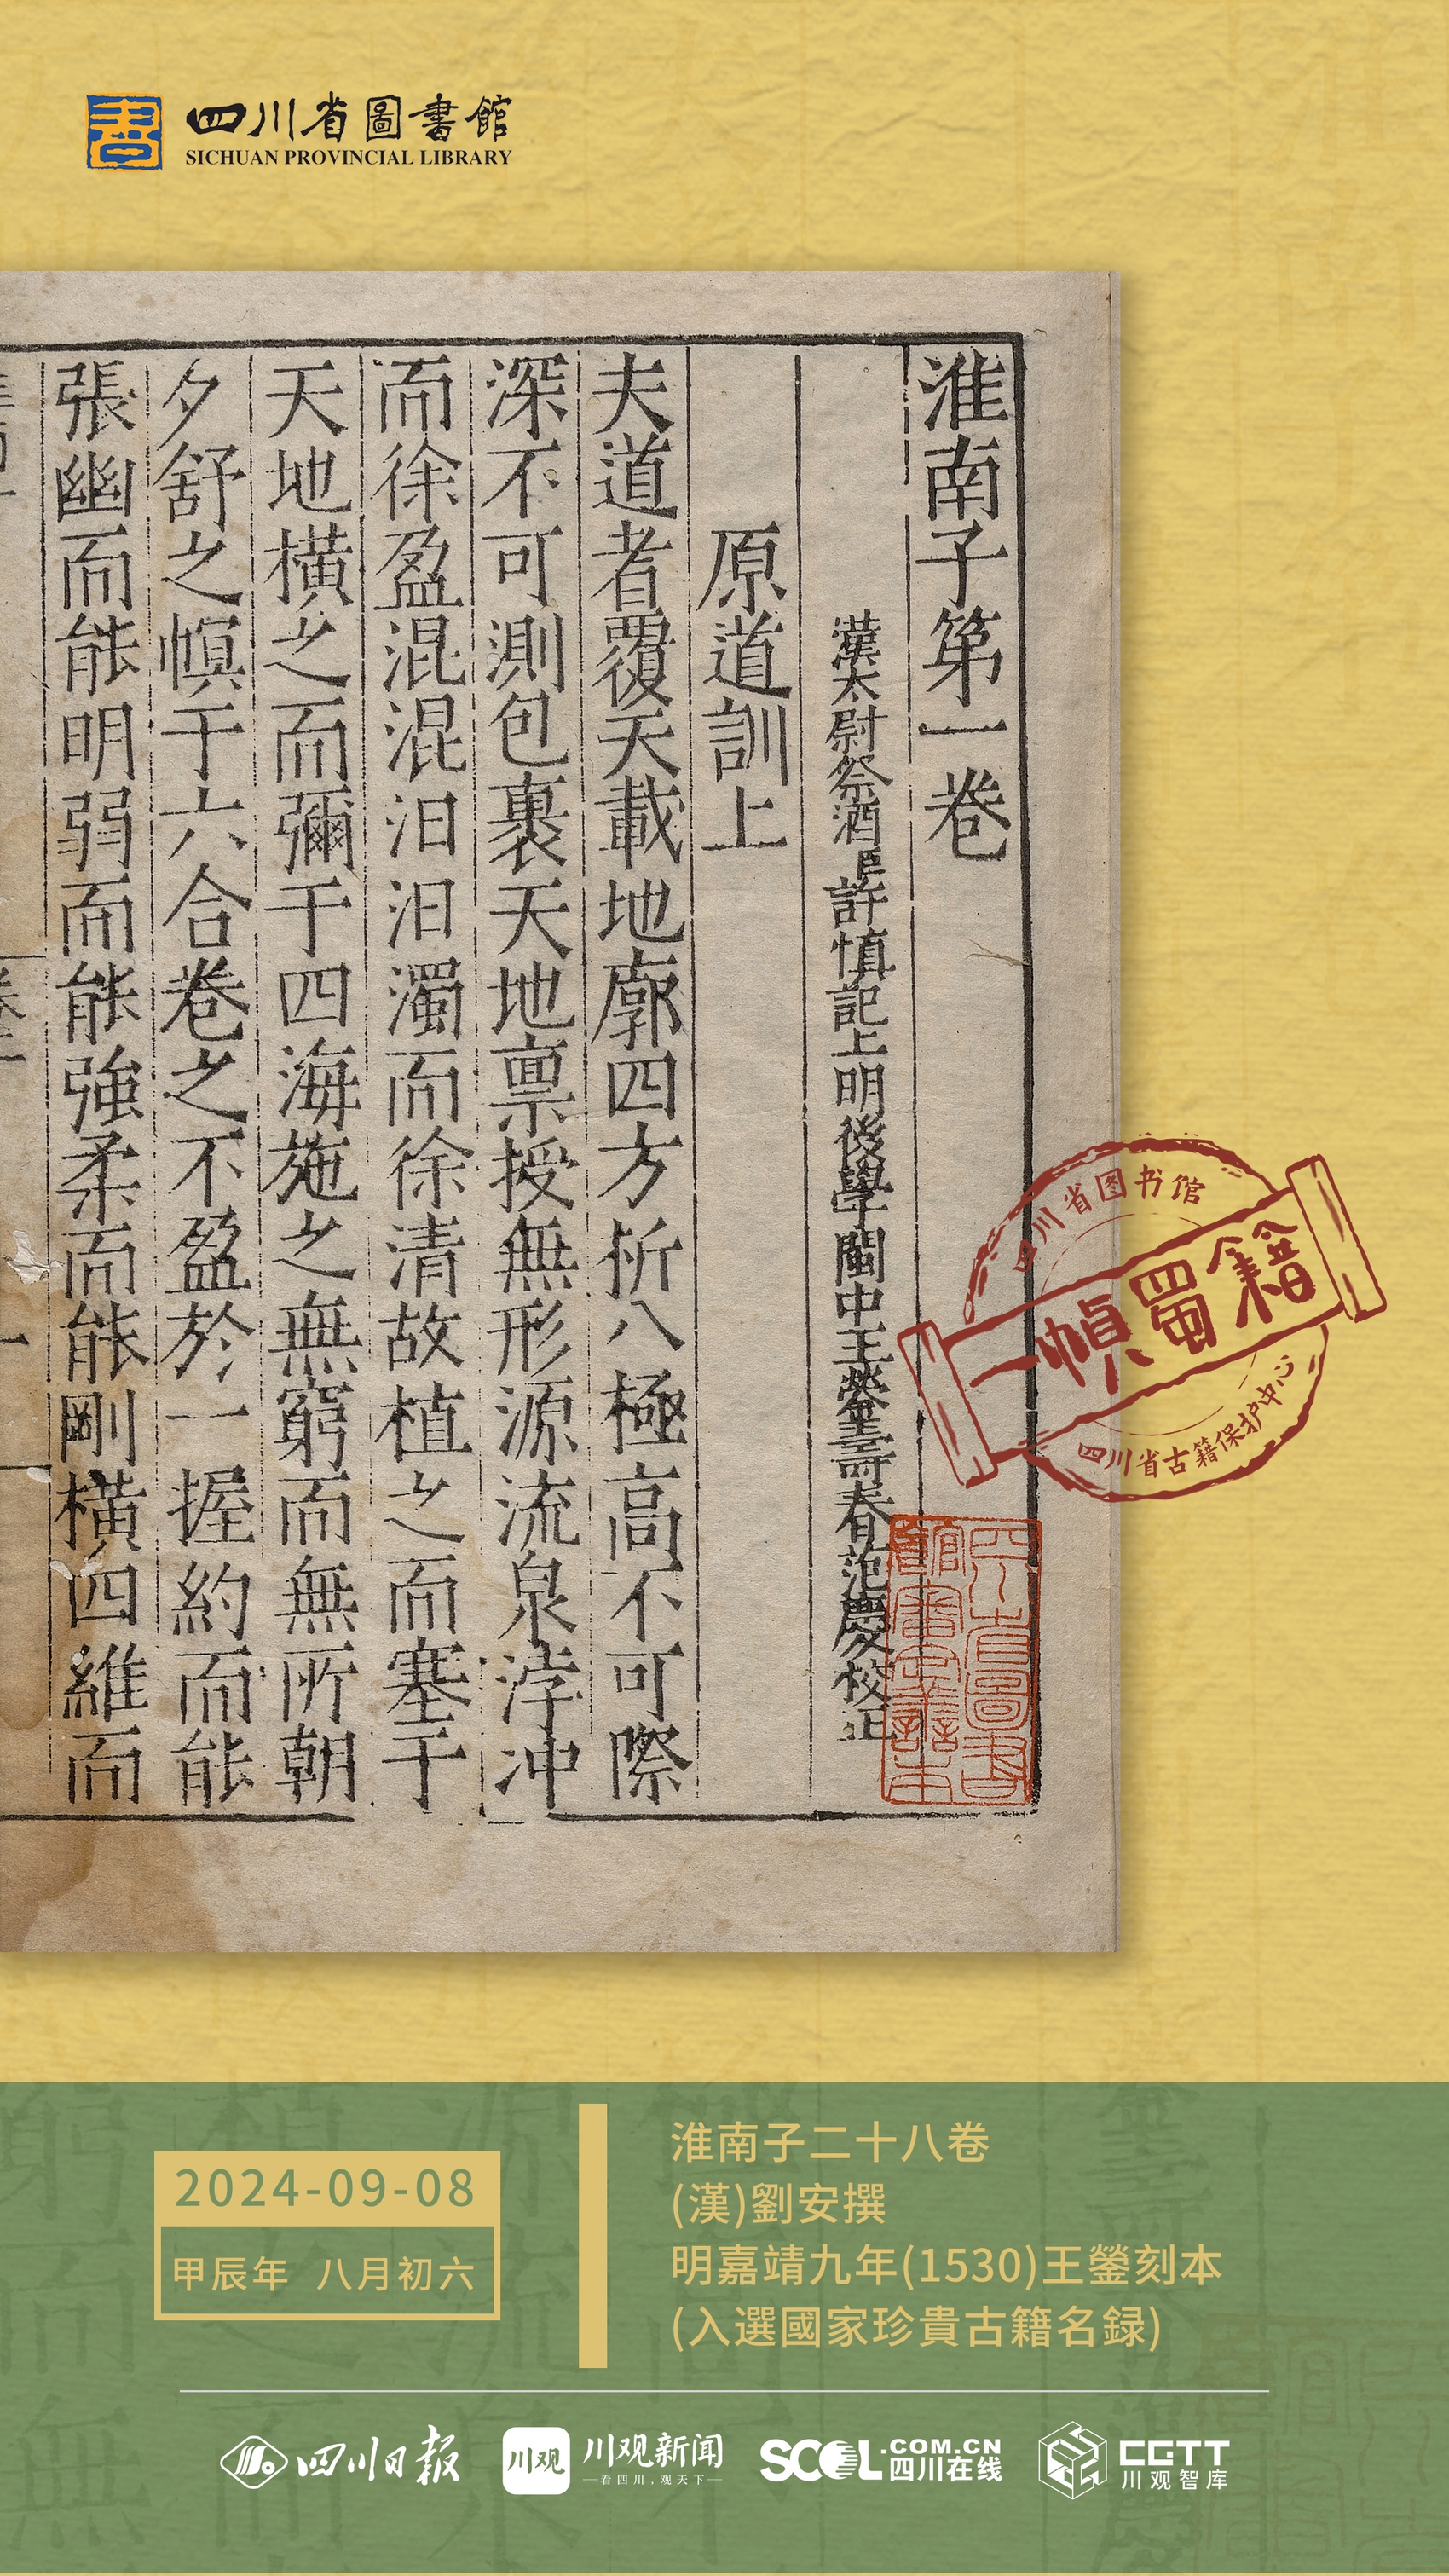 四川省圖書館
SICHUAN PROVINCIAL LIBRARY
淮南子第一卷
漢太尉祭酒臣許慎記上明後學閩中王鎣壽春范慶校正
原道訓上
夫道者覆天載地廓四方㭊八極高不可際
深不可測包裹天地禀授無形源流泉浡冲
而徐盈混混汩汩濁而徐清故植之而塞于
天地橫之而彌于四海施之無窮而無所朝
夕舒之幎于六合卷之不盈於一握約而能
張幽而能明弱而能強柔而能剛橫四維而
四川省图书馆
一幀蜀籍
四川省古籍保护中心
四川省圖書
館善本
2024-09-08
甲辰年 八月初六
淮南子二十八卷
(漢)劉安撰
明嘉靖九年(1530)王鎣刻本
(入選國家珍貴古籍名録)
四川日报
川观
川观新闻
看四川,观天下
SCOL.COM.CN
四川在线
CGTT
川观智库